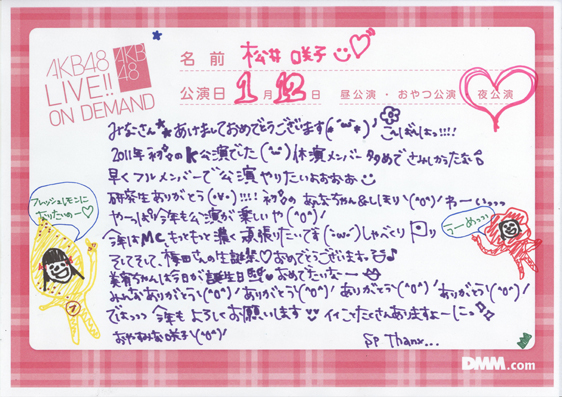 AKB48
LIVE!!
ON DEMAND
AKB
48
名前 松井 咲子
公演日 1月12日 昼公演・おやつ公演 夜公演
みなさん あけましておめでとうございます こんばしはっ!!!!
2011年 初々のK公演でた 休演メンバー多めでさみしかったな
早くフルメンバーで公演やりたいよぉぉぉぉ
研究生ありがとう !!!! 初々の あんなちゃん&しほり \(^o^)/ やーいっっっ
やーっぱり今年も公演が楽しいや (^o^)/
今年はMCもっともっと濃く頑張りたいです しゃべくり
そしてそして 梅田さんの生誕祭♡おめでとうございます♪
美宥ちゃんは今日が誕生日 おめでたいなー
みんなありがとう \(^o^)/ ありがとう \(^o^)/ ありがとう \(^o^)/ ありがとう \(^o^)/
でわっっっ 今年もよろしくお願いします イイことたくさんありますよーにっ
おやすみな咲子 \(^o^)/
Sp Thanx...
フレッシュレモンに
なりたいのー♡
うーめっっっ
DMM.com